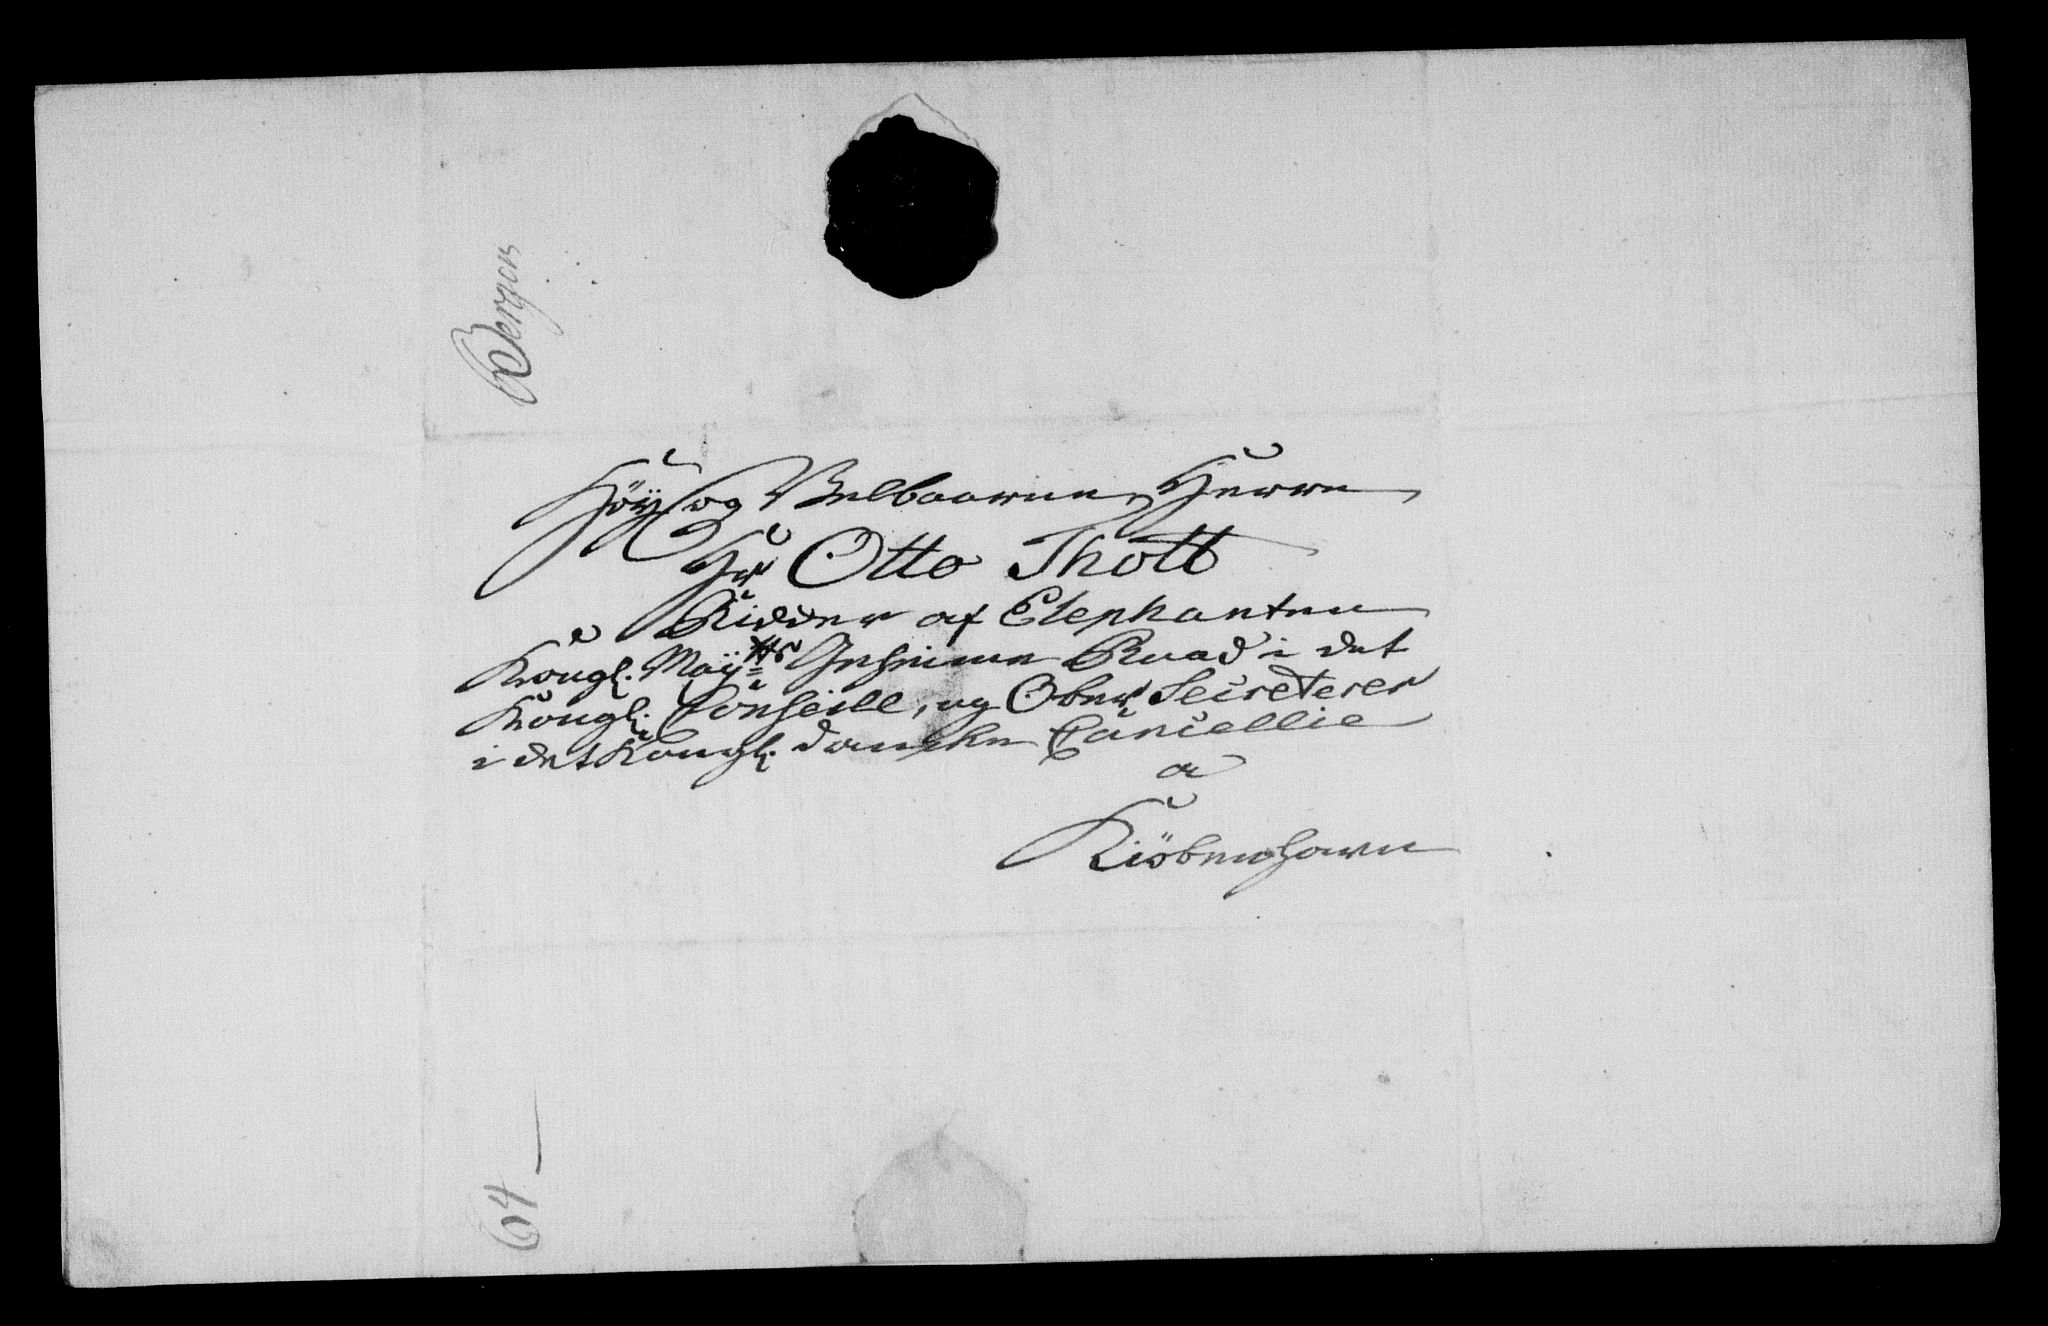 Bergen
Höy og Velbaarne Herre
Hr Otto Thott
Ridder af Elephanten
Kongl. Mayts Geheime Raad i det
Kongl: Conseill, og Ober Secreterer
i det Kongl. danske Cancellie
a
Kiöbenhavn
64